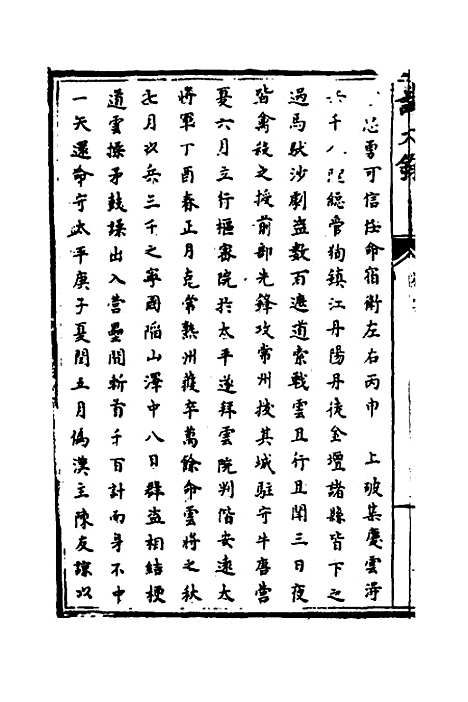 忠勇可信任命宿衛左右丙申　上破集慶雲淂
兵千人陞總管狥鎮江丹陽丹徒金壇諸縣皆下之
過馬馱沙劇盜數百遮道索戰雲且行且鬪三日夜
皆禽殺之授前部先鋒攻常州拔其城駐守牛唐營
夏六月立行樞密院扵太平遂拜雲院判階安逺大
將軍丁酉春正月克常熟州獲卒萬餘命雲將之秋
七月以兵三千之寧國陷山澤中八日群盜相結梗
道雲操矛鼓譟出入營壘間斬首千百計而身不中
一矢還命守太平庚子夏閏五月偽漢主陳友諒以